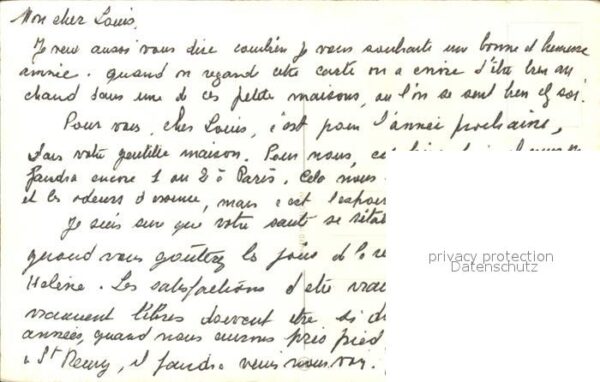 Mon cher Louis,
Je veux aussi vous dire combien je vous souhaite une bonne et heureuse
année. quand on regard cette carte on a envie d'être bien au
chaud dans une de ces petite maisons, ou l'on se sent bien chez soi.
Pour vous, cher Louis, c'est pour l'année prochaine,
dans votre gentille maison. Pour nous,
faudra encore 1 ou 2 à Paris. Cela nous
et les odeurs d'essence, mais c'est l'espoir
Je suis sur que votre santé se
quand vous goûterez les joies de la
Helène. Les satisfactions d'etre
vraiment libres doivent etre si
années, quand nous aurons pris pied
à St Remy, il faudra venir nous voir.
privacy protection
Datenschutz